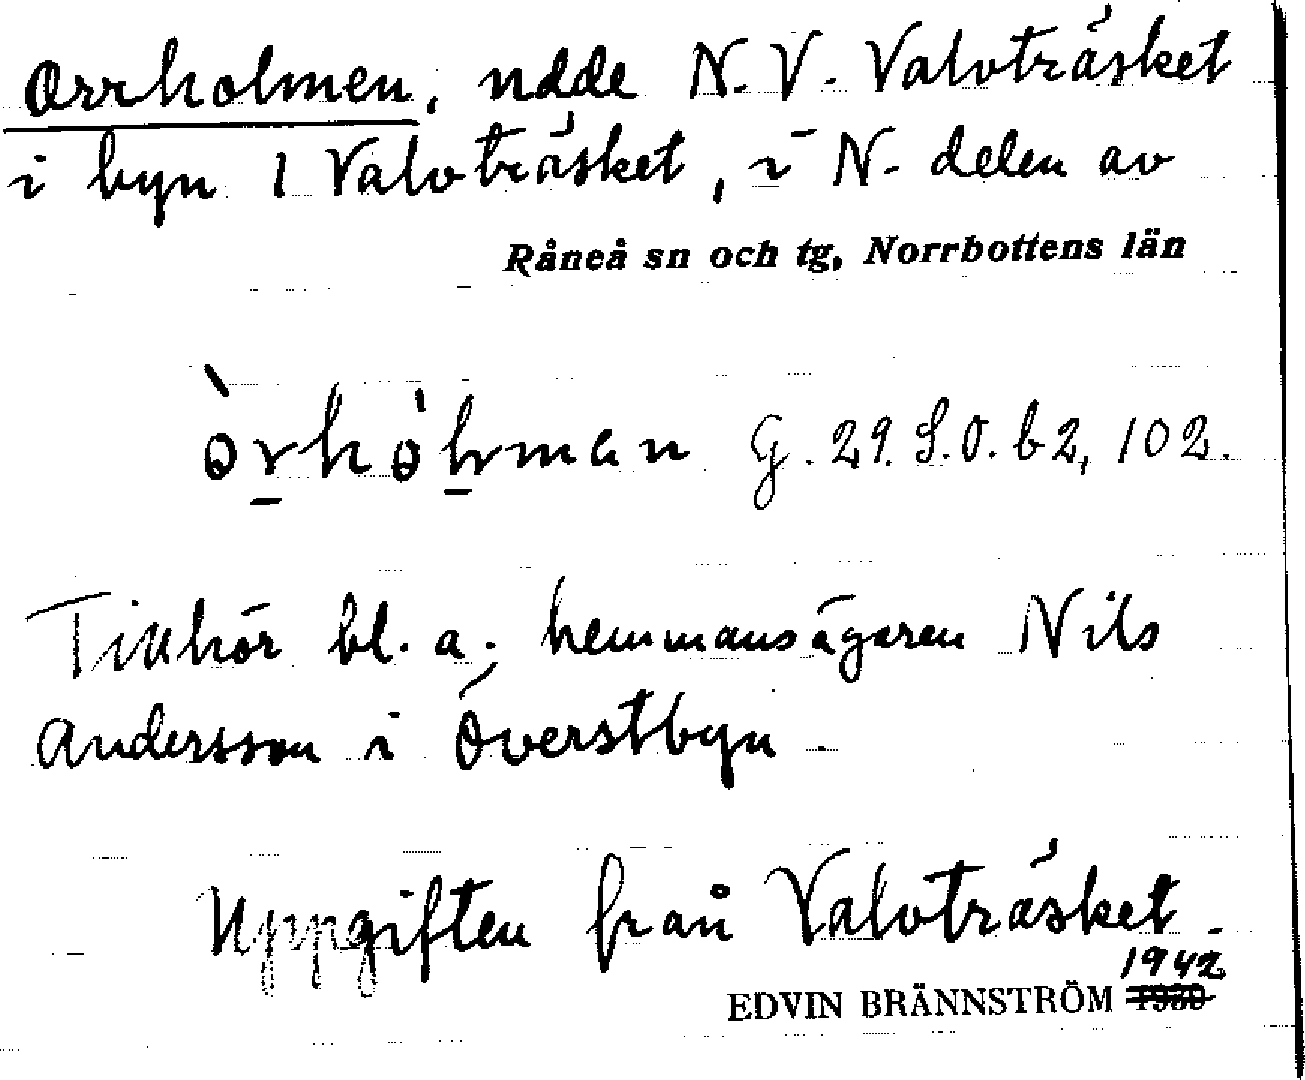 Orrholmen, udde N.V. Valvträsket
i byn 1 Valvträsket, i N. delen av
Råneå sn och tg, Norrbottens län
G. 29. S.O. b 2, 102.
Tillhör bl. a. hemmansägaren Nils
Andersson i Överstbyn
Uppgiften från Valvträsket.
1942
EDVIN BRÄNNSTRÖM 1930